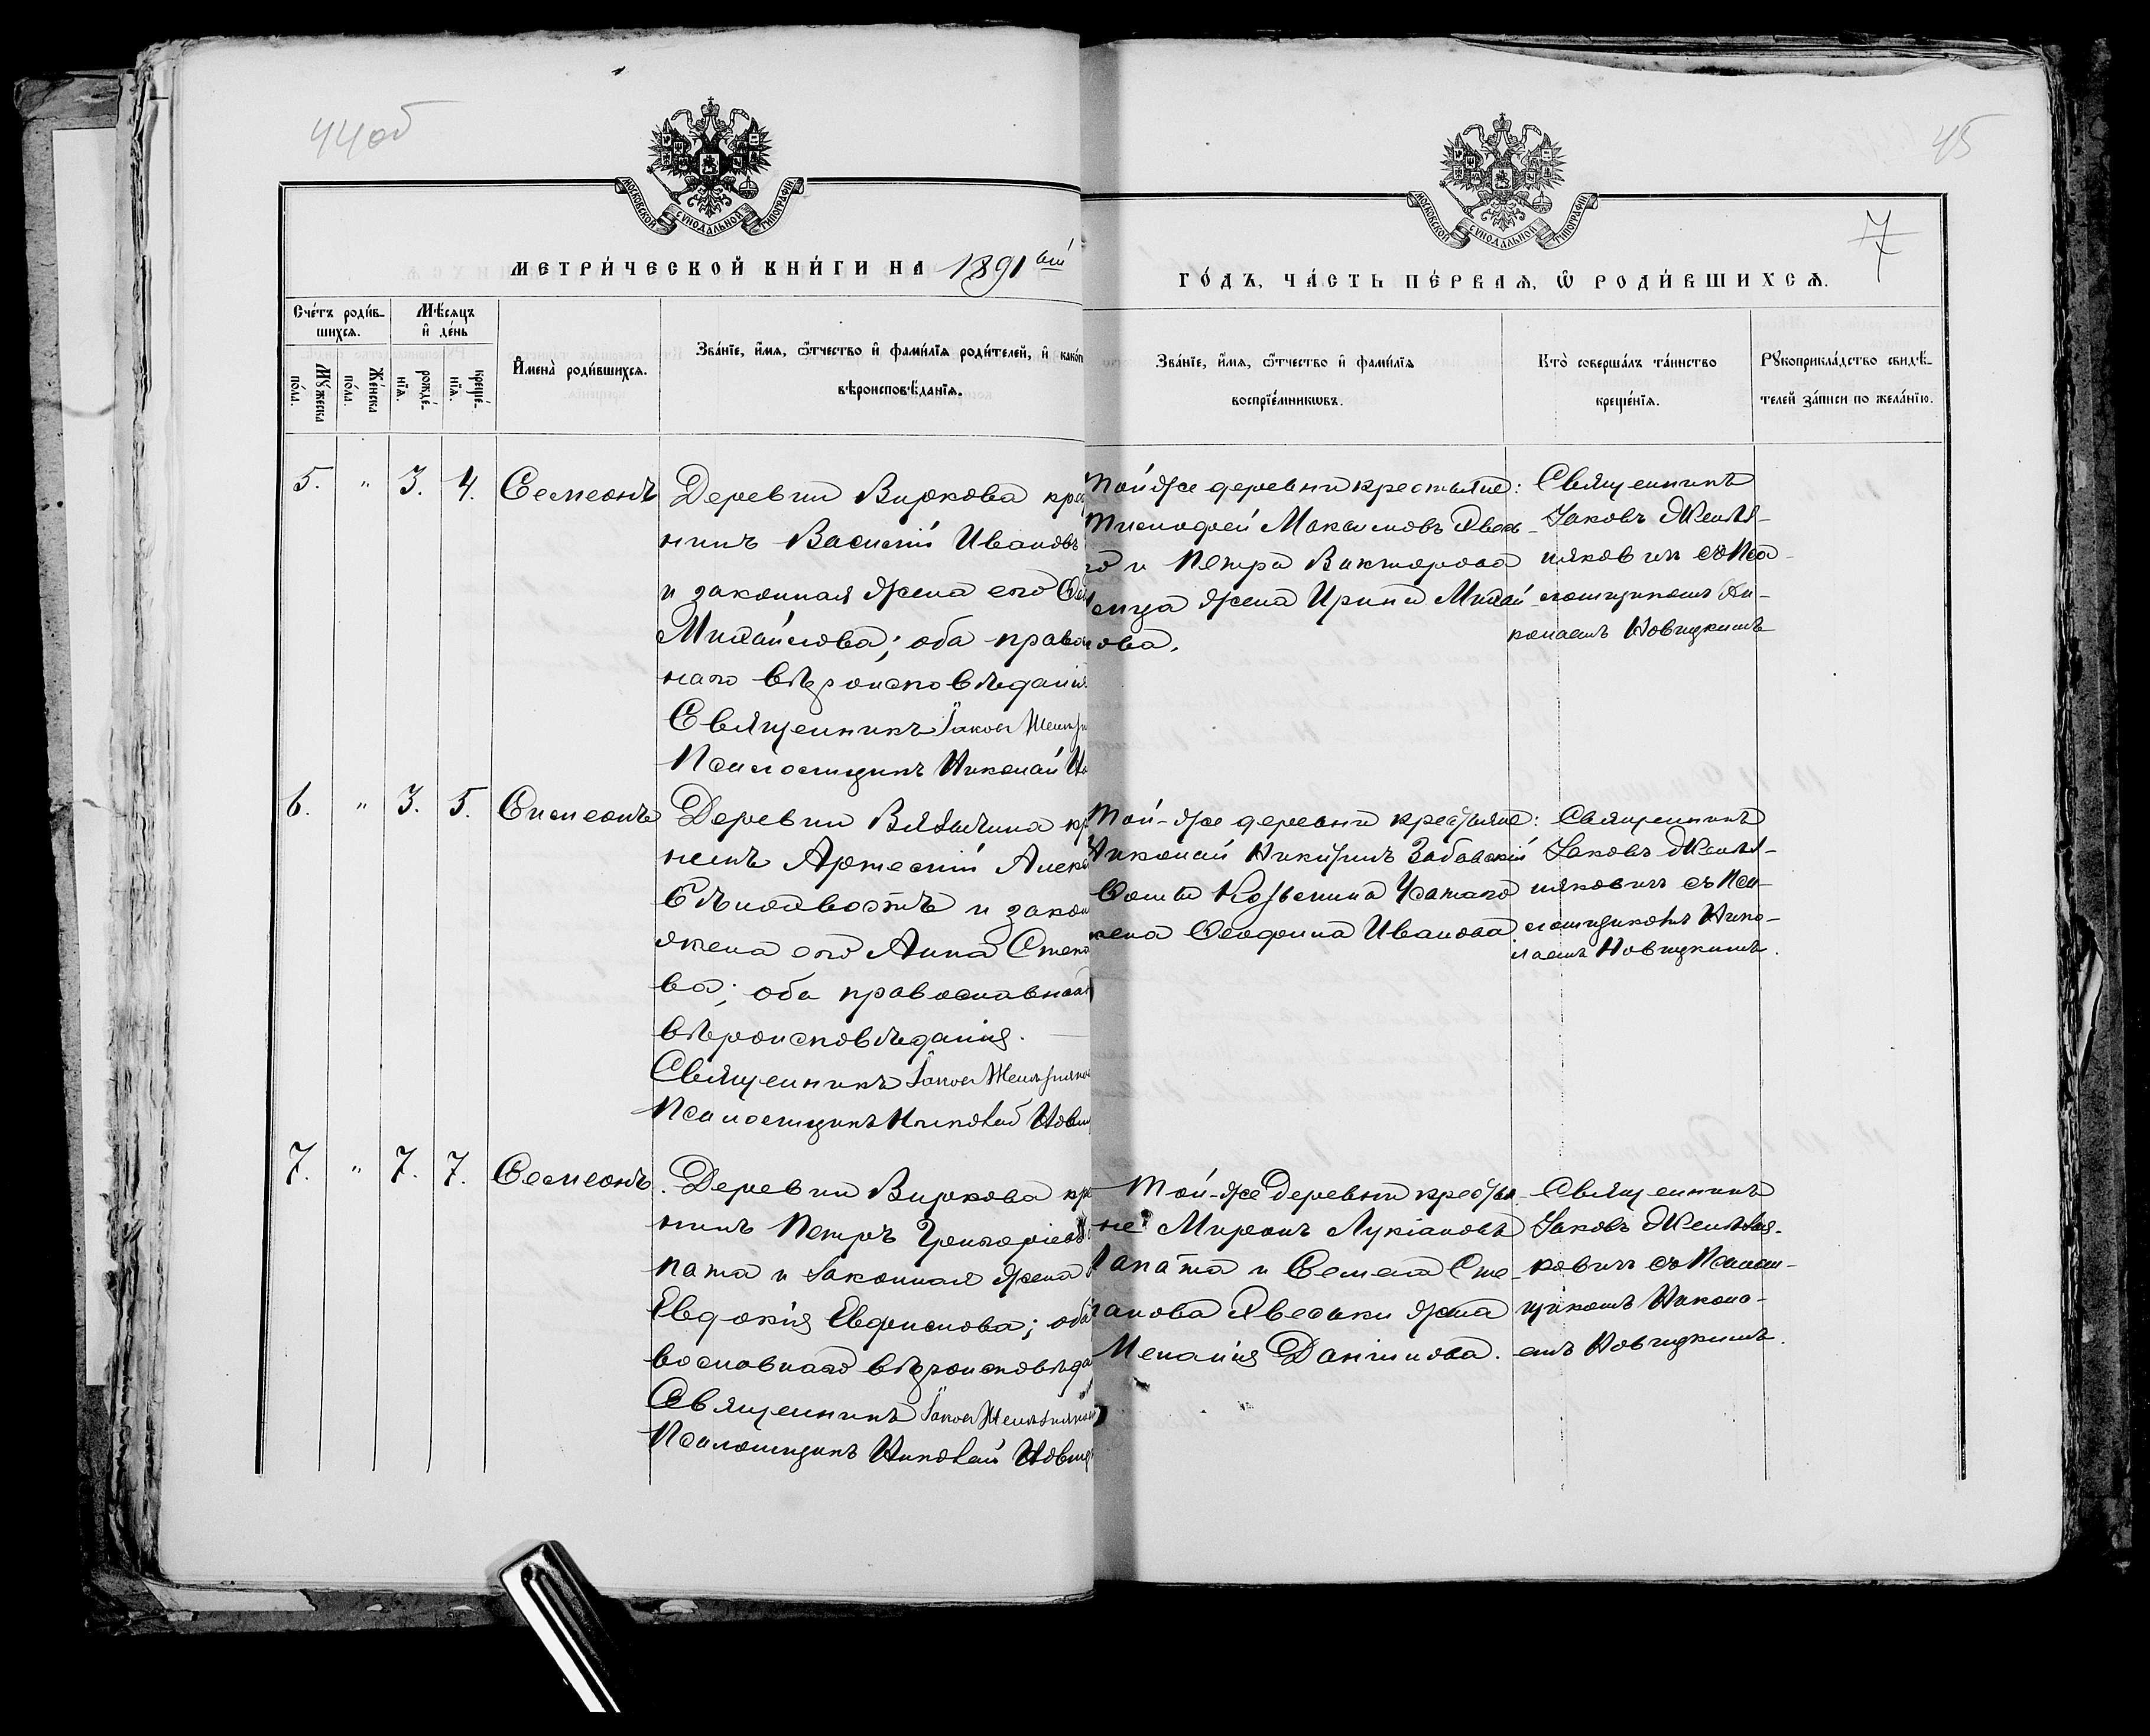 44об
45
МОСКОВСКОЙ СѴНОДАЛЬНОЙ ТИПОГРАФІИ
МОСКОВСКОЙ СѴНОДАЛЬНОЙ ТИПОГРАФІИ
7
МЕТРИ́ЧЕСКОЙ КНИ́ГИ НА 1891 ый
ГО́ДЪ, ЧА́СТЬ ПЕ́РВАѦ, Ѡ҆ РОДИ́ВШИХСѦ.
Сче́тъ роди́в-
шихсѧ.
Мꙋ́жеска по́ла.
Же́нска по́ла.
Мѣ́сяцъ
и҆ де́нь
рожде́-нїѧ.
креще́-нїѧ.
И҆мена̀ роди́вшихсѧ.
Зва́нїе, и҆́мѧ, ѻ҆́тчество и҆ фами́лїѧ роди́телей, и҆ како́гѡ
вѣроисповѣ́данїѧ.
Зва́нїе, и҆́мѧ, ѻ҆́тчество и҆ фами́лїѧ
воспрїе́мникѡвъ.
Кто̀ соверша́лъ та́инство
креще́нїѧ.
Рꙋкоприкла́дство свидѣ́-
телей за́писи по жела́нїю.
5. " 3. 4. Семеонъ
Деревни Виркова кре
нинъ Василій Ивановъ
и законная жена его
Михайлова; оба право
наго вѣроисповѣданія
Священникъ Іаковъ
Псаломщикъ Николай
Той же деревни крестьяне:
Тимофей Максимовъ
и Петра Викторова
жена Ирина Михай
ова.
Священникъ
Іаковъ Желѣз-
няковичъ съ Пса-
ломщикомъ Ни-
колаемъ Новицкимъ
6. " 3. 5. Симеонъ
Деревни
Артемій
и закон
жена его Анна Степа
ва; оба православнаго
вѣроисповѣданія.
Священникъ Іаковъ Желѣзняков
Псаломщикъ Николай Нови
Той-же деревни крестьяне:
Николай Никитинъ
жена Иванова
Священникъ
Іаковъ Желѣз-
няковичъ съ Пса-
ломщикомъ Нико-
лаемъ Новицкимъ.
7. " 7. 7. Семеонъ.
Деревни Виркова кре
нинъ Петръ Григоріевъ
пата и законная жена
Евдокія; оба
вославнаго вѣроисповѣда
Священникъ Іаковъ Желѣзняков
Псаломщикъ Николай Новиц
Той-же деревни крестья-
не Миронъ Лукіановъ
Лапата и Семена Сте-
панова жена
Меланія Данилова.
Священникъ
Іаковъ Желѣзня-
ковичъ съ Псалом-
щикомъ Никола-
емъ Новицкимъ.